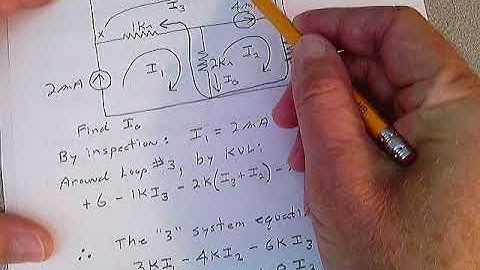 I₃
4m
1KΩ
I₁
2KΩ
I₂
I₀
2mA
Find I₀
By inspection: I₁ = 2mA
Around Loop #3, by KVL:
+6 - 1KI₃ - 2K(I₃+I₂) -
∴ The "3" system equatio
3KI - 4KI₂ - 6KI₃